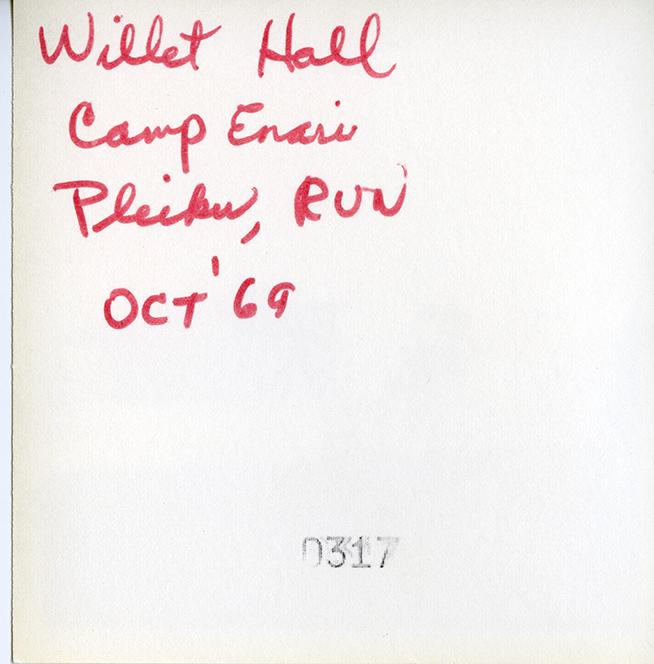 Willet Hall
Camp Enari
Pleiku, RVN
OCT '69
0317